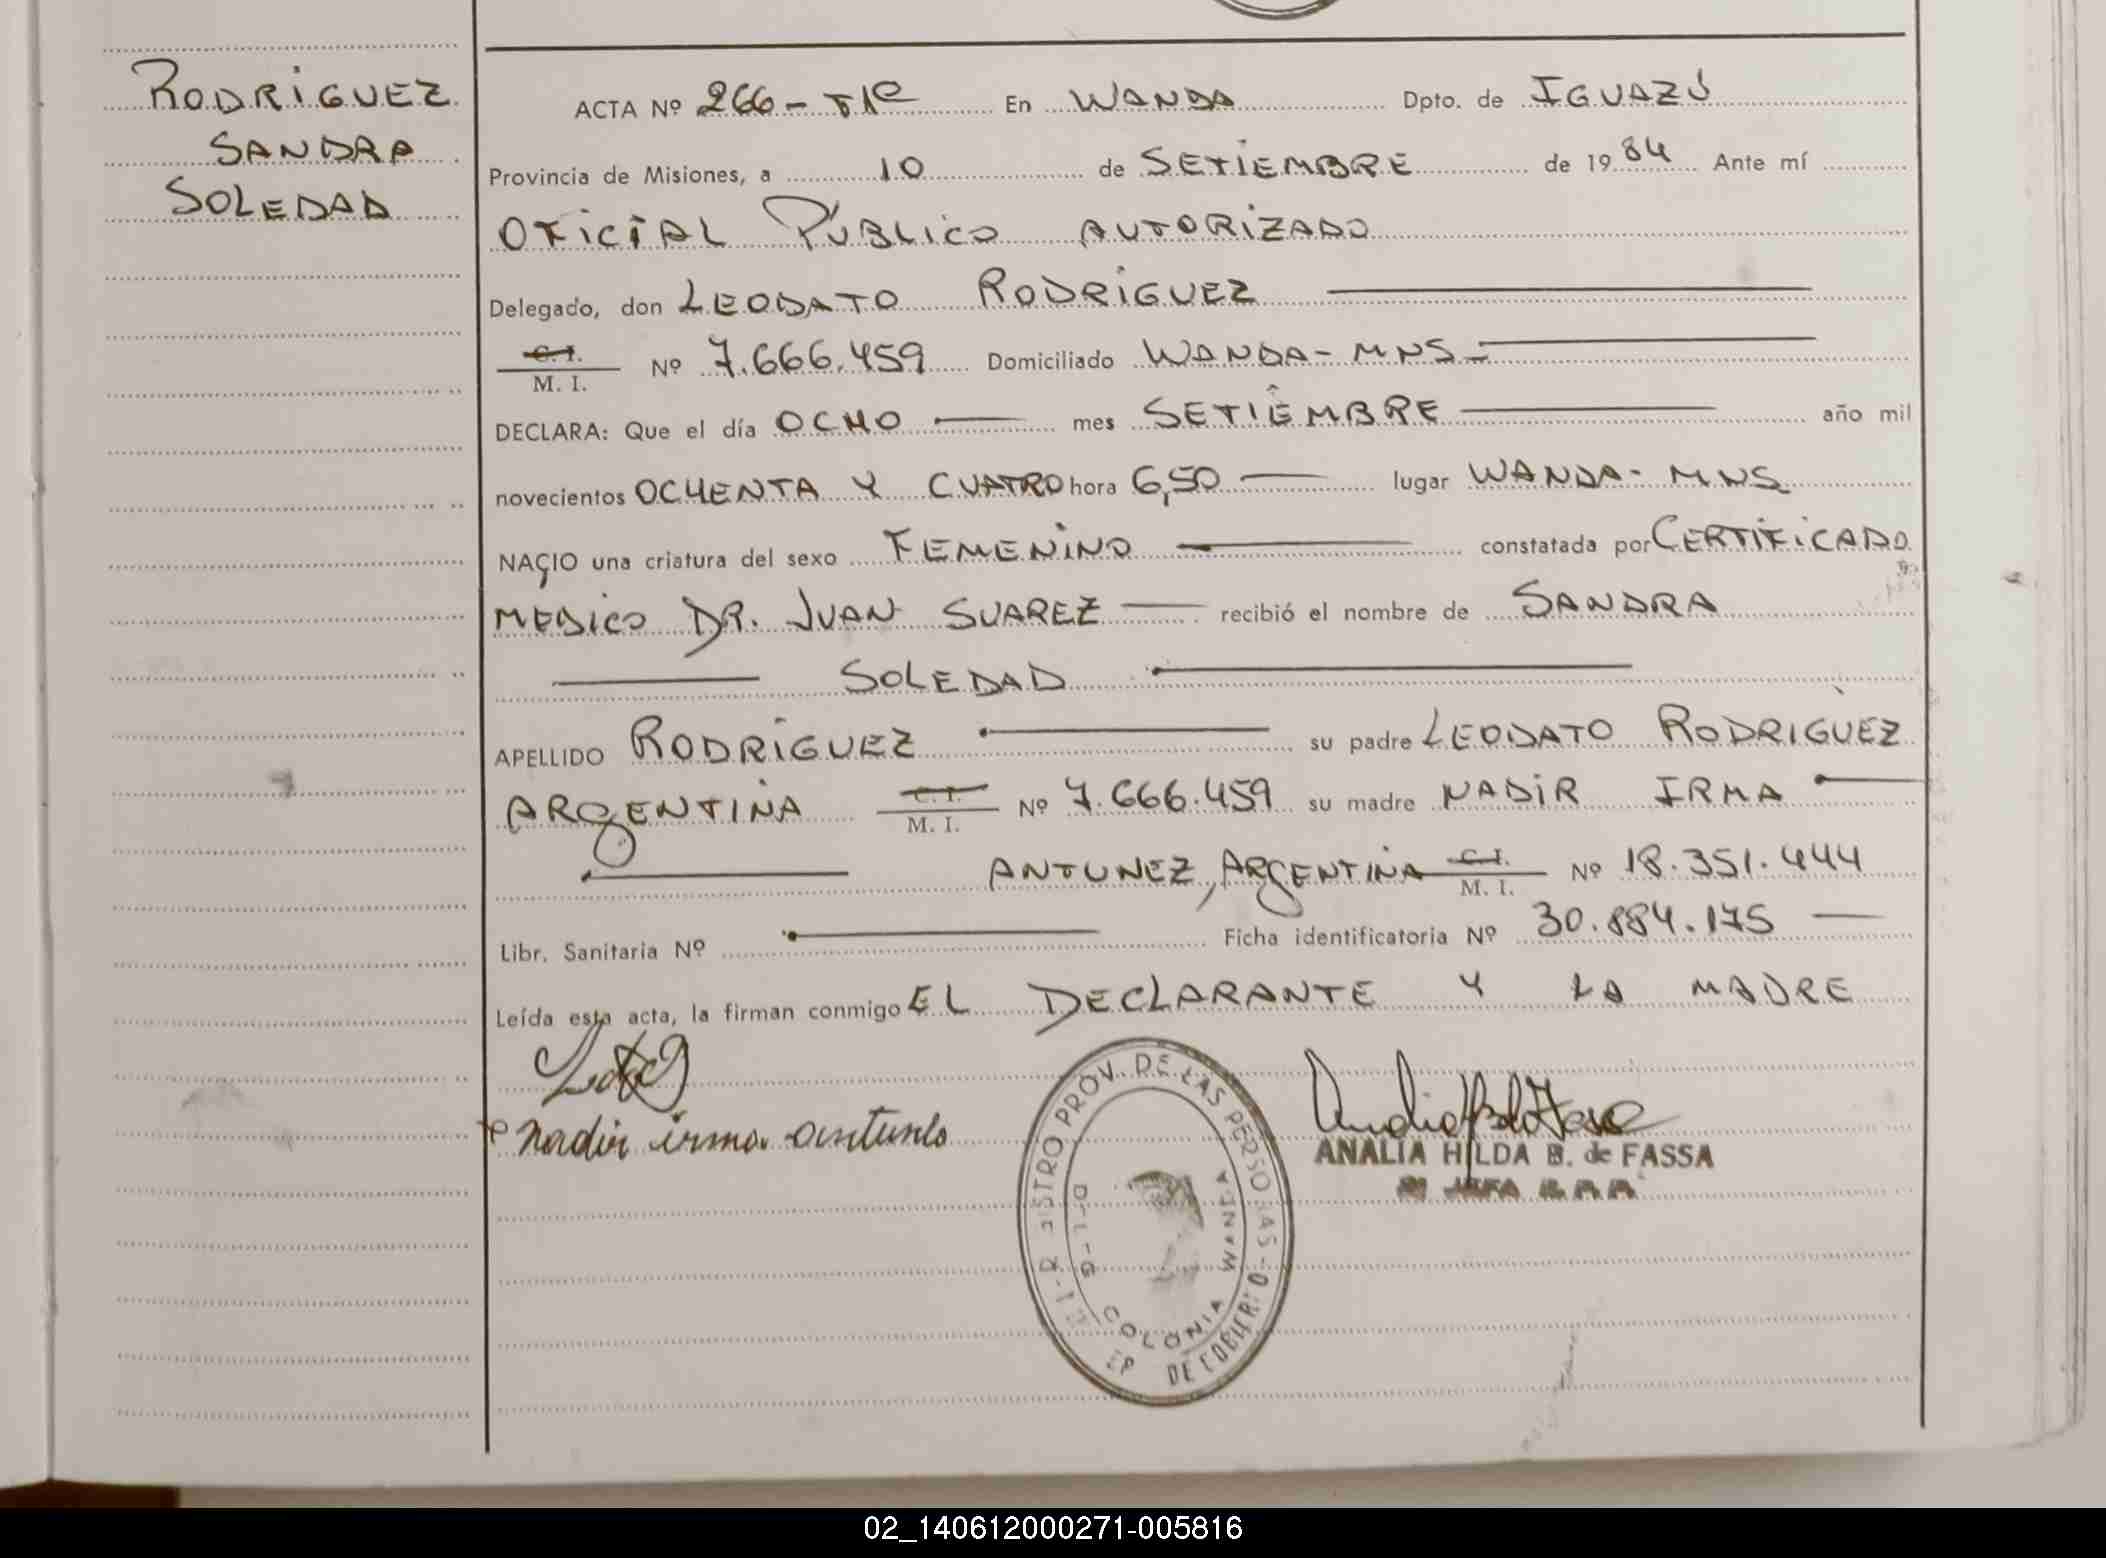 RODRIGUEZ
SANDRA
SOLEDAD
ACTA Nº 266 - En WANDA Dpto. de IGUAZÚ
Provincia de Misiones, a 10 de SETIEMBRE de 1984 Ante mí
OFICIAL PÚBLICO AUTORIZADO
Delegado, don LEODATO RODRIGUEZ
C. I.
M. I. Nº 7.666.459 Domiciliado WANDA - MNS
DECLARA: Que el día OCHO mes SETIEMBRE año mil
novecientos OCHENTA Y CUATRO hora 6,50 lugar WANDA - MNS
NACIO una criatura del sexo FEMENINO constatada por CERTIFICADO
MEDICO DR. JUAN SUAREZ recibió el nombre de SANDRA
SOLEDAD
APELLIDO RODRIGUEZ su padre LEODATO RODRIGUEZ
ARGENTINA C. I. M. I. Nº 7.666.459 su madre NADIR IRMA
ANTUNEZ, ARGENTINA C. I. M. I. Nº 18.351.444
Libr. Sanitaria Nº Ficha identificatoria Nº 30.884.175
Leída esta acta, la firman conmigo EL DECLARANTE Y LA MADRE
nadir irma
ANALIA HILDA B. de FASSA
PROV. DE LAS
COLONIA WANDA
02_140612000271-005816